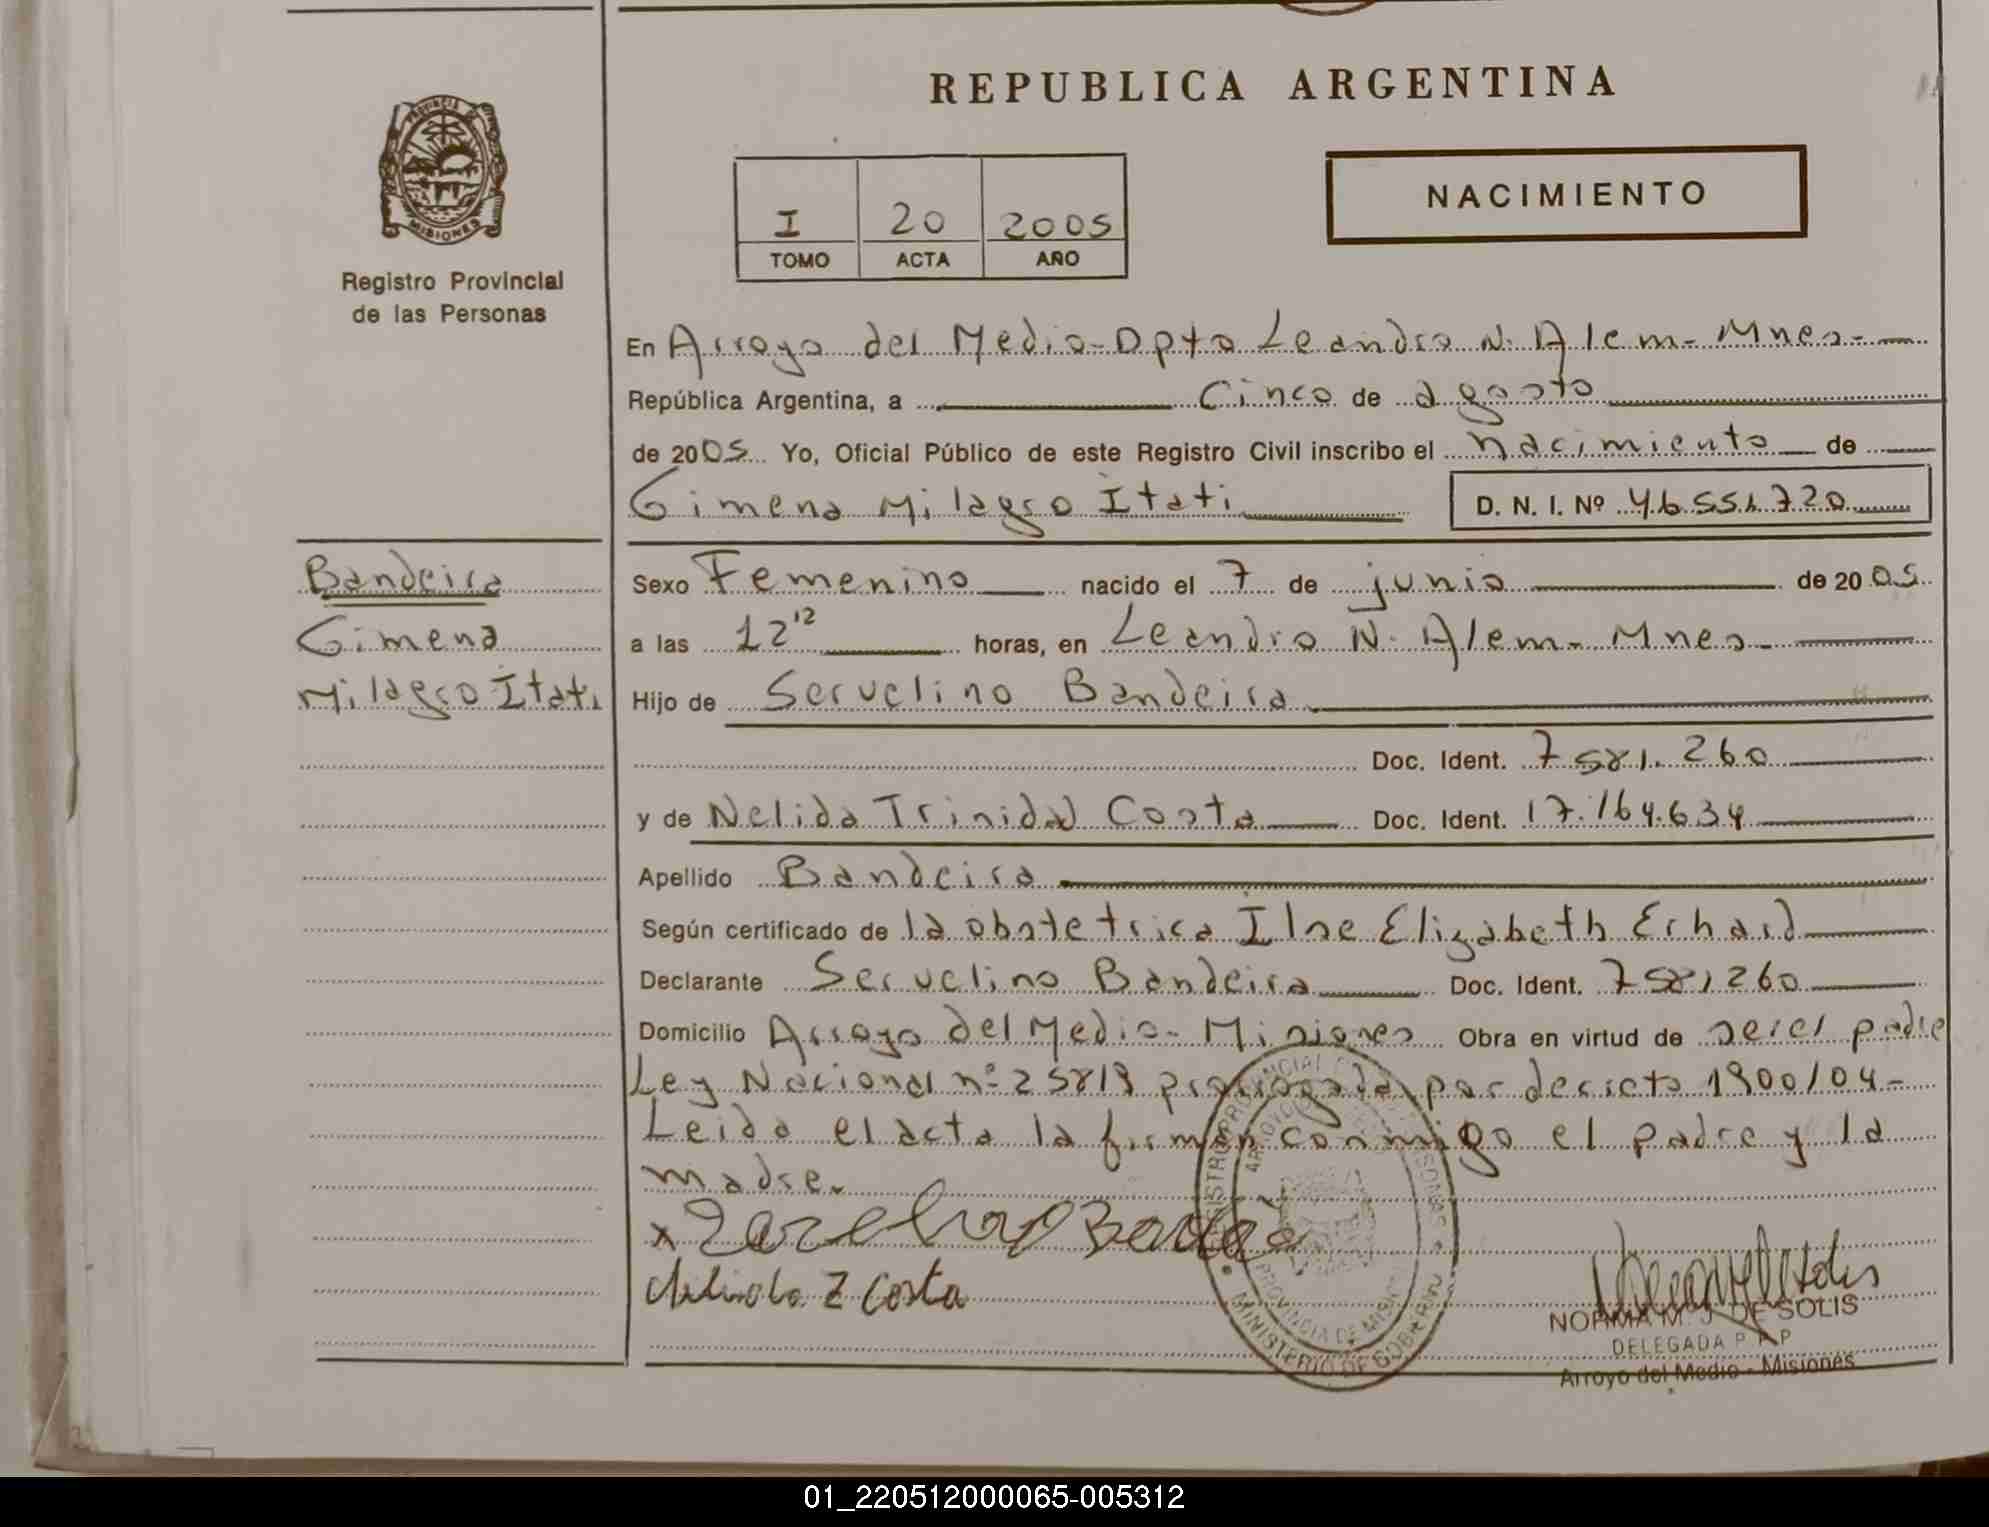 REPUBLICA ARGENTINA
PROVINCIA DE
MISIONES
Registro Provincial
de las Personas
I 20 2005
TOMO ACTA AÑO
NACIMIENTO
En Arroyo del Medio-Dpto Leandro N. Alem-Mnes-
República Argentina, a cinco de agosto
de 2005 Yo, Oficial Público de este Registro Civil inscribo el nacimiento de
Gimena Milagro Itati D. N. I. Nº 46.551.720
Bandeira
Gimena
Milagro Itati
Sexo Femenino nacido el 7 de junio de 2005
a las 12 12 horas, en Leandro N. Alem-Mnes-
Hijo de Servelino Bandeira
Doc. Ident. 7581.260
y de Nelida Trinidad Costa Doc. Ident. 17.164.634
Apellido Bandeira
Según certificado de la obstetrica Ilse Elizabeth Erhard
Declarante Servelino Bandeira Doc. Ident. 7581260
Domicilio Arroyo del Medio-Misiones Obra en virtud de ser el padre
Ley Nacional nº 25819 prorrogada por decreto 1900/04-
Leida el acta la firman conmigo el padre y la
madre.
x
Z Costa
REGISTRO PROVINCIAL DE LAS PERSONAS
MINISTERIO DE GOBIERNO
PROVINCIA DE MISIONES
NORMA M. J. DE SOLIS
DELEGADA
Arroyo del Medio - Misiones
01_220512000065-005312